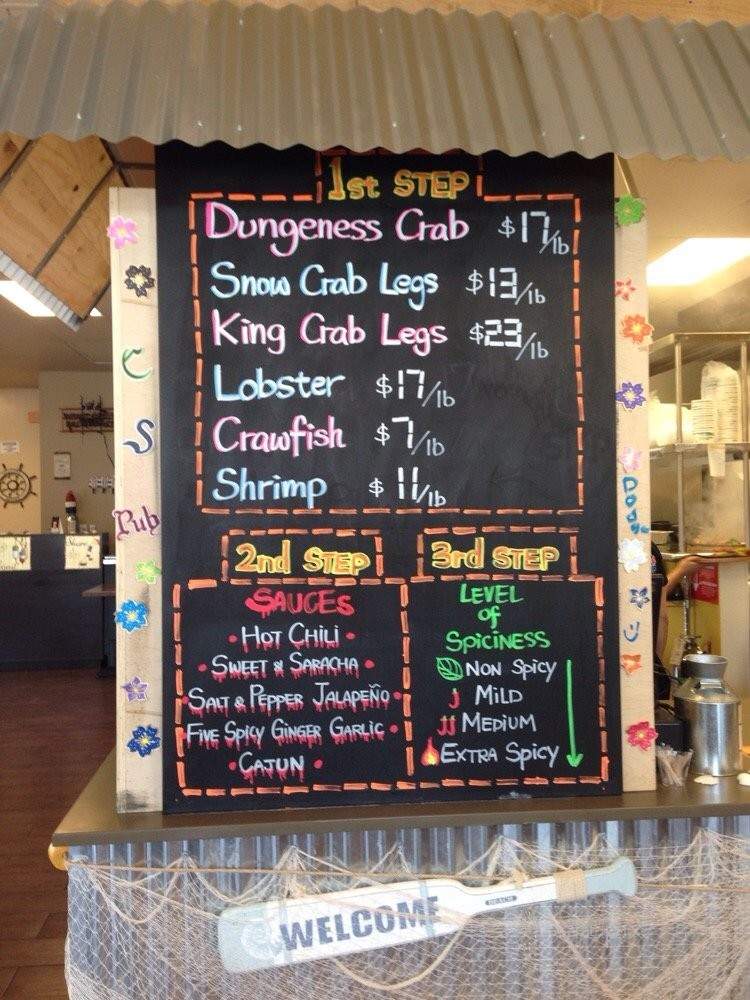 1st STEP
Dungeness Crab $17/lb
Snow Crab Legs $13/lb
King Crab Legs $23/lb
Lobster $17/lb
Crawfish $7/lb
Shrimp $11/lb
2nd STEP
SAUCES
• HOT CHILI •
• SWEET & SARACHA •
• SALT & PEPPER JALAPEÑO •
• FIVE SPICY GINGER GARLIC •
• CAJUN •
3rd STEP
LEVEL
of
SPICINESS
NON SPICY
MILD
MEDIUM
EXTRA SPICY
C
S
Pub
WELCOME
BEACH